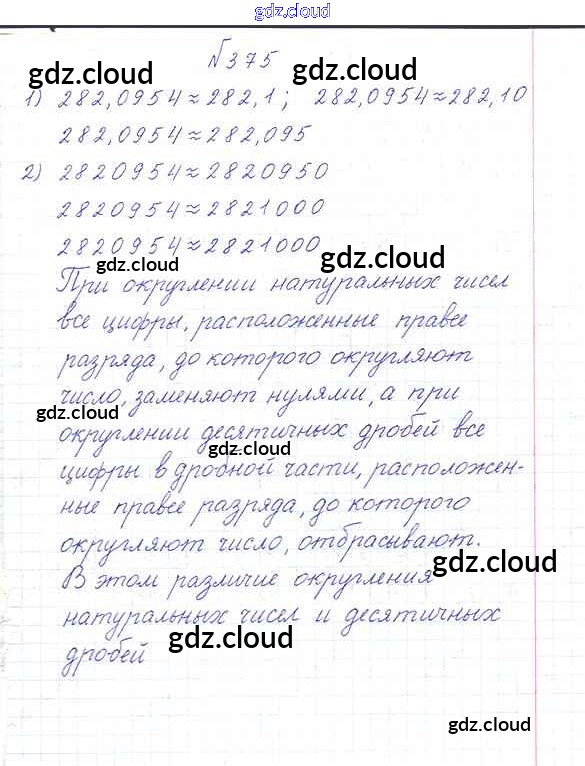 gdz.cloud
№375
gdz.cloud gdz.cloud
1) 282,0954≈282,1; 282,0954≈282,10
282,0954≈282,095
2) 2820954≈2820950
2820954≈2821000
2820954≈2821000
gdz.cloud gdz.cloud
При округлении натуральных чисел
все цифры, расположенные правее
разряда, до которого округляют
число, заменяют нулями, а при
gdz.cloud
округлении десятичных дробей все
цифры в дробной части, расположен-
ные правее разряда, до которого
округляют число, отбрасывают.
gdz.cloud
В этом различие округления
натуральных чисел и десятичных
gdz.cloud
дробей
gdz.cloud